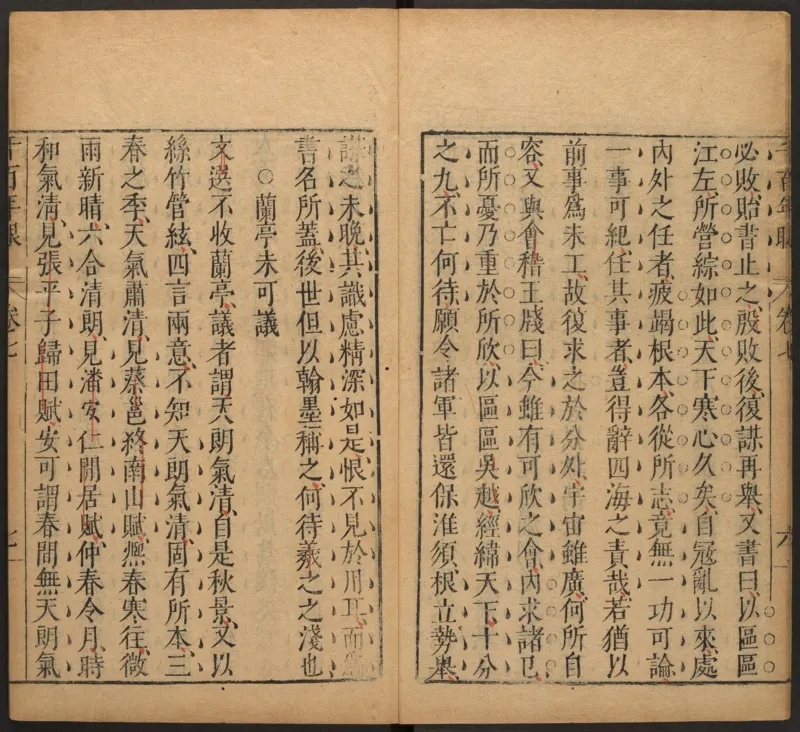 必敗貽書止之殷敗後復謀再舉又書曰以區區
江左所營綜如此天下寒心久矣自寇亂以來處
內外之任者疲竭根本各從所志竟無一功可論
一事可紀任其事者豈得辭四海之責哉若猶以
前事爲未工故復求之於分外宇宙雖廣何所自
容又與會稽王牋曰今雖有可欣之會內求諸己
而所憂乃重於所欣以區區吳越經緯天下十分
之九不亡何待願令諸軍皆還保淮須根立勢舉
謀之未晚其識慮精深如是恨不見於用耳而爲
書名所蓋後世但以翰墨稱之何待羲之之淺也
○蘭亭未可議
文選不收蘭亭議者謂天朗氣清自是秋景又以
絲竹管絃四言兩意不知天朗氣清固有所本三
春之季天氣肅清見蔡邕終南山賦熙春寒往微
雨新晴六合清朗見潘安仁閒居賦仲春令月時
和氣清見張平子歸田賦安可謂春間無天朗氣
千百年眼 卷七 六
千百年眼 卷七 七